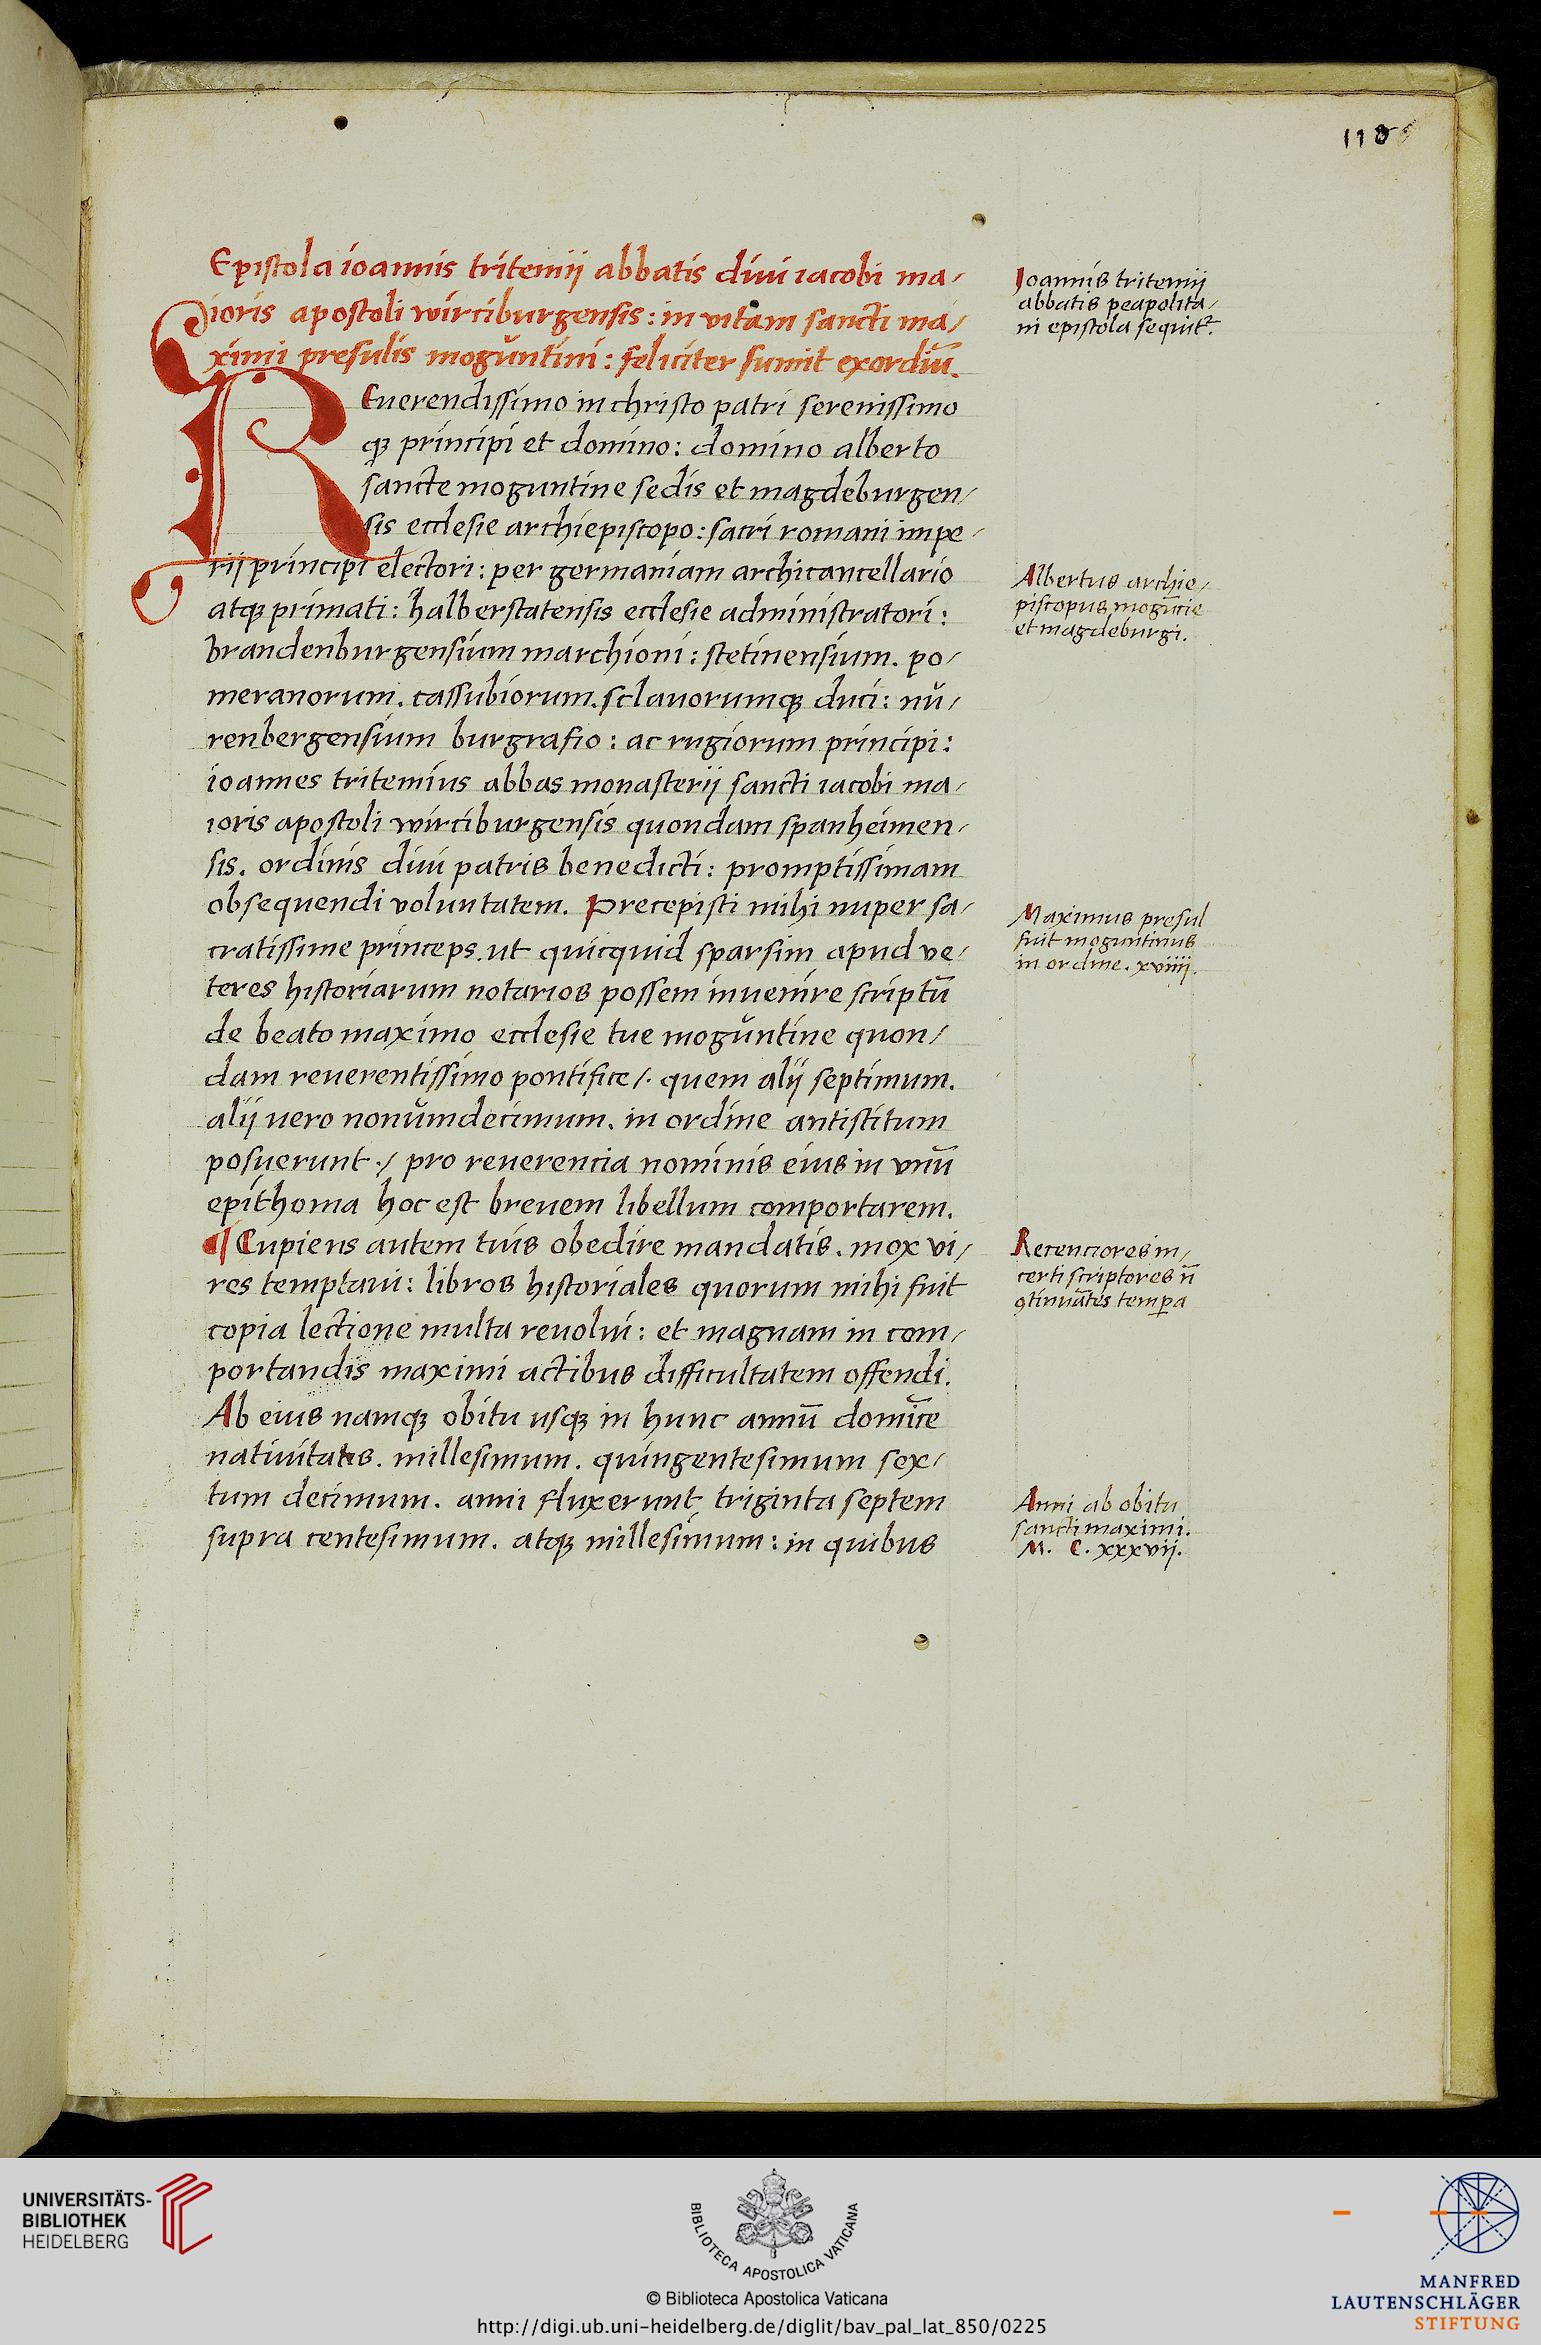 110
Epistola ioannis tritemij abbatis diui iacobi ma/
ioris apostoli wirciburgensis: in vitam sancti ma/
ximi presulis moguntini: feliciter sumit exordiū.
REuerendissimo in christo patri serenissimo
qꝫ principi et domino: domino alberto
sancte moguntine sedis et magdeburgen/
sis ecclesie archiepiscopo: sacri romani impe/
rij principi electori: per germaniam archicancellario
atqꝫ primati: halberstatensis ecclesie administratori:
brandenburgensium marchioni: stetinensium. po/
meranorum. cassubiorum. sclauorumqꝫ duci: nu/
renbergensium burgrafio: ac rugiorum principi:
ioannes tritemius abbas monasterij sancti iacobi ma/
ioris apostoli wirciburgensis quondam spanheimen/
sis. ordinis diui patris benedicti: promptissimam
obsequendi voluntatem. Precepisti mihi nuper sa/
cratissime princeps. ut quicquid sparsim apud ve/
teres historiarum notarios possem inuenire scriptū
de beato maximo ecclesie tue moguntine quon/
dam reuerentissimo pontifice/. quem alij septimum.
alij uero nonumdecimum. in ordine antistitum
posuerunt ./ pro reuerencia nominis eius in vnū
epithoma hoc est breuem libellum comportarem.
¶ Cupiens autem tuis obedire mandatis. mox vi/
res temptaui: libros historiales quorum mihi fuit
copia lectione multa reuolui: et magnam in com/
portandis maximi actibus difficultatem offendi.
Ab eius namqꝫ obitu usqꝫ in hunc annū domīce
natiuitatis. millesimum. quingentesimum sex/
tum decimum. anni fluxerunt triginta septem
supra centesimum. atqꝫ millesimum: in quibus
Ioannis tritemij
abbatis peapolita/
ni epistola sequit᷑.
Albertus archie/
piscopus mogūcie
et magdeburgi.
Maximus presul
fuit moguntinus
in ordine. xviiij.
Recenciores in/
certi scriptores ñ
ꝯtinuātes temꝑa
Anni ab obitu
sancti maximi.
M. C. xxxvij.
UNIVERSITÄTS-
BIBLIOTHEK
HEIDELBERG
BIBLIOTECA APOSTOLICA VATICANA
© Biblioteca Apostolica Vaticana
http://digi.ub.uni-heidelberg.de/diglit/bav_pal_lat_850/0225
MANFRED
LAUTENSCHLÄGER
STIFTUNG